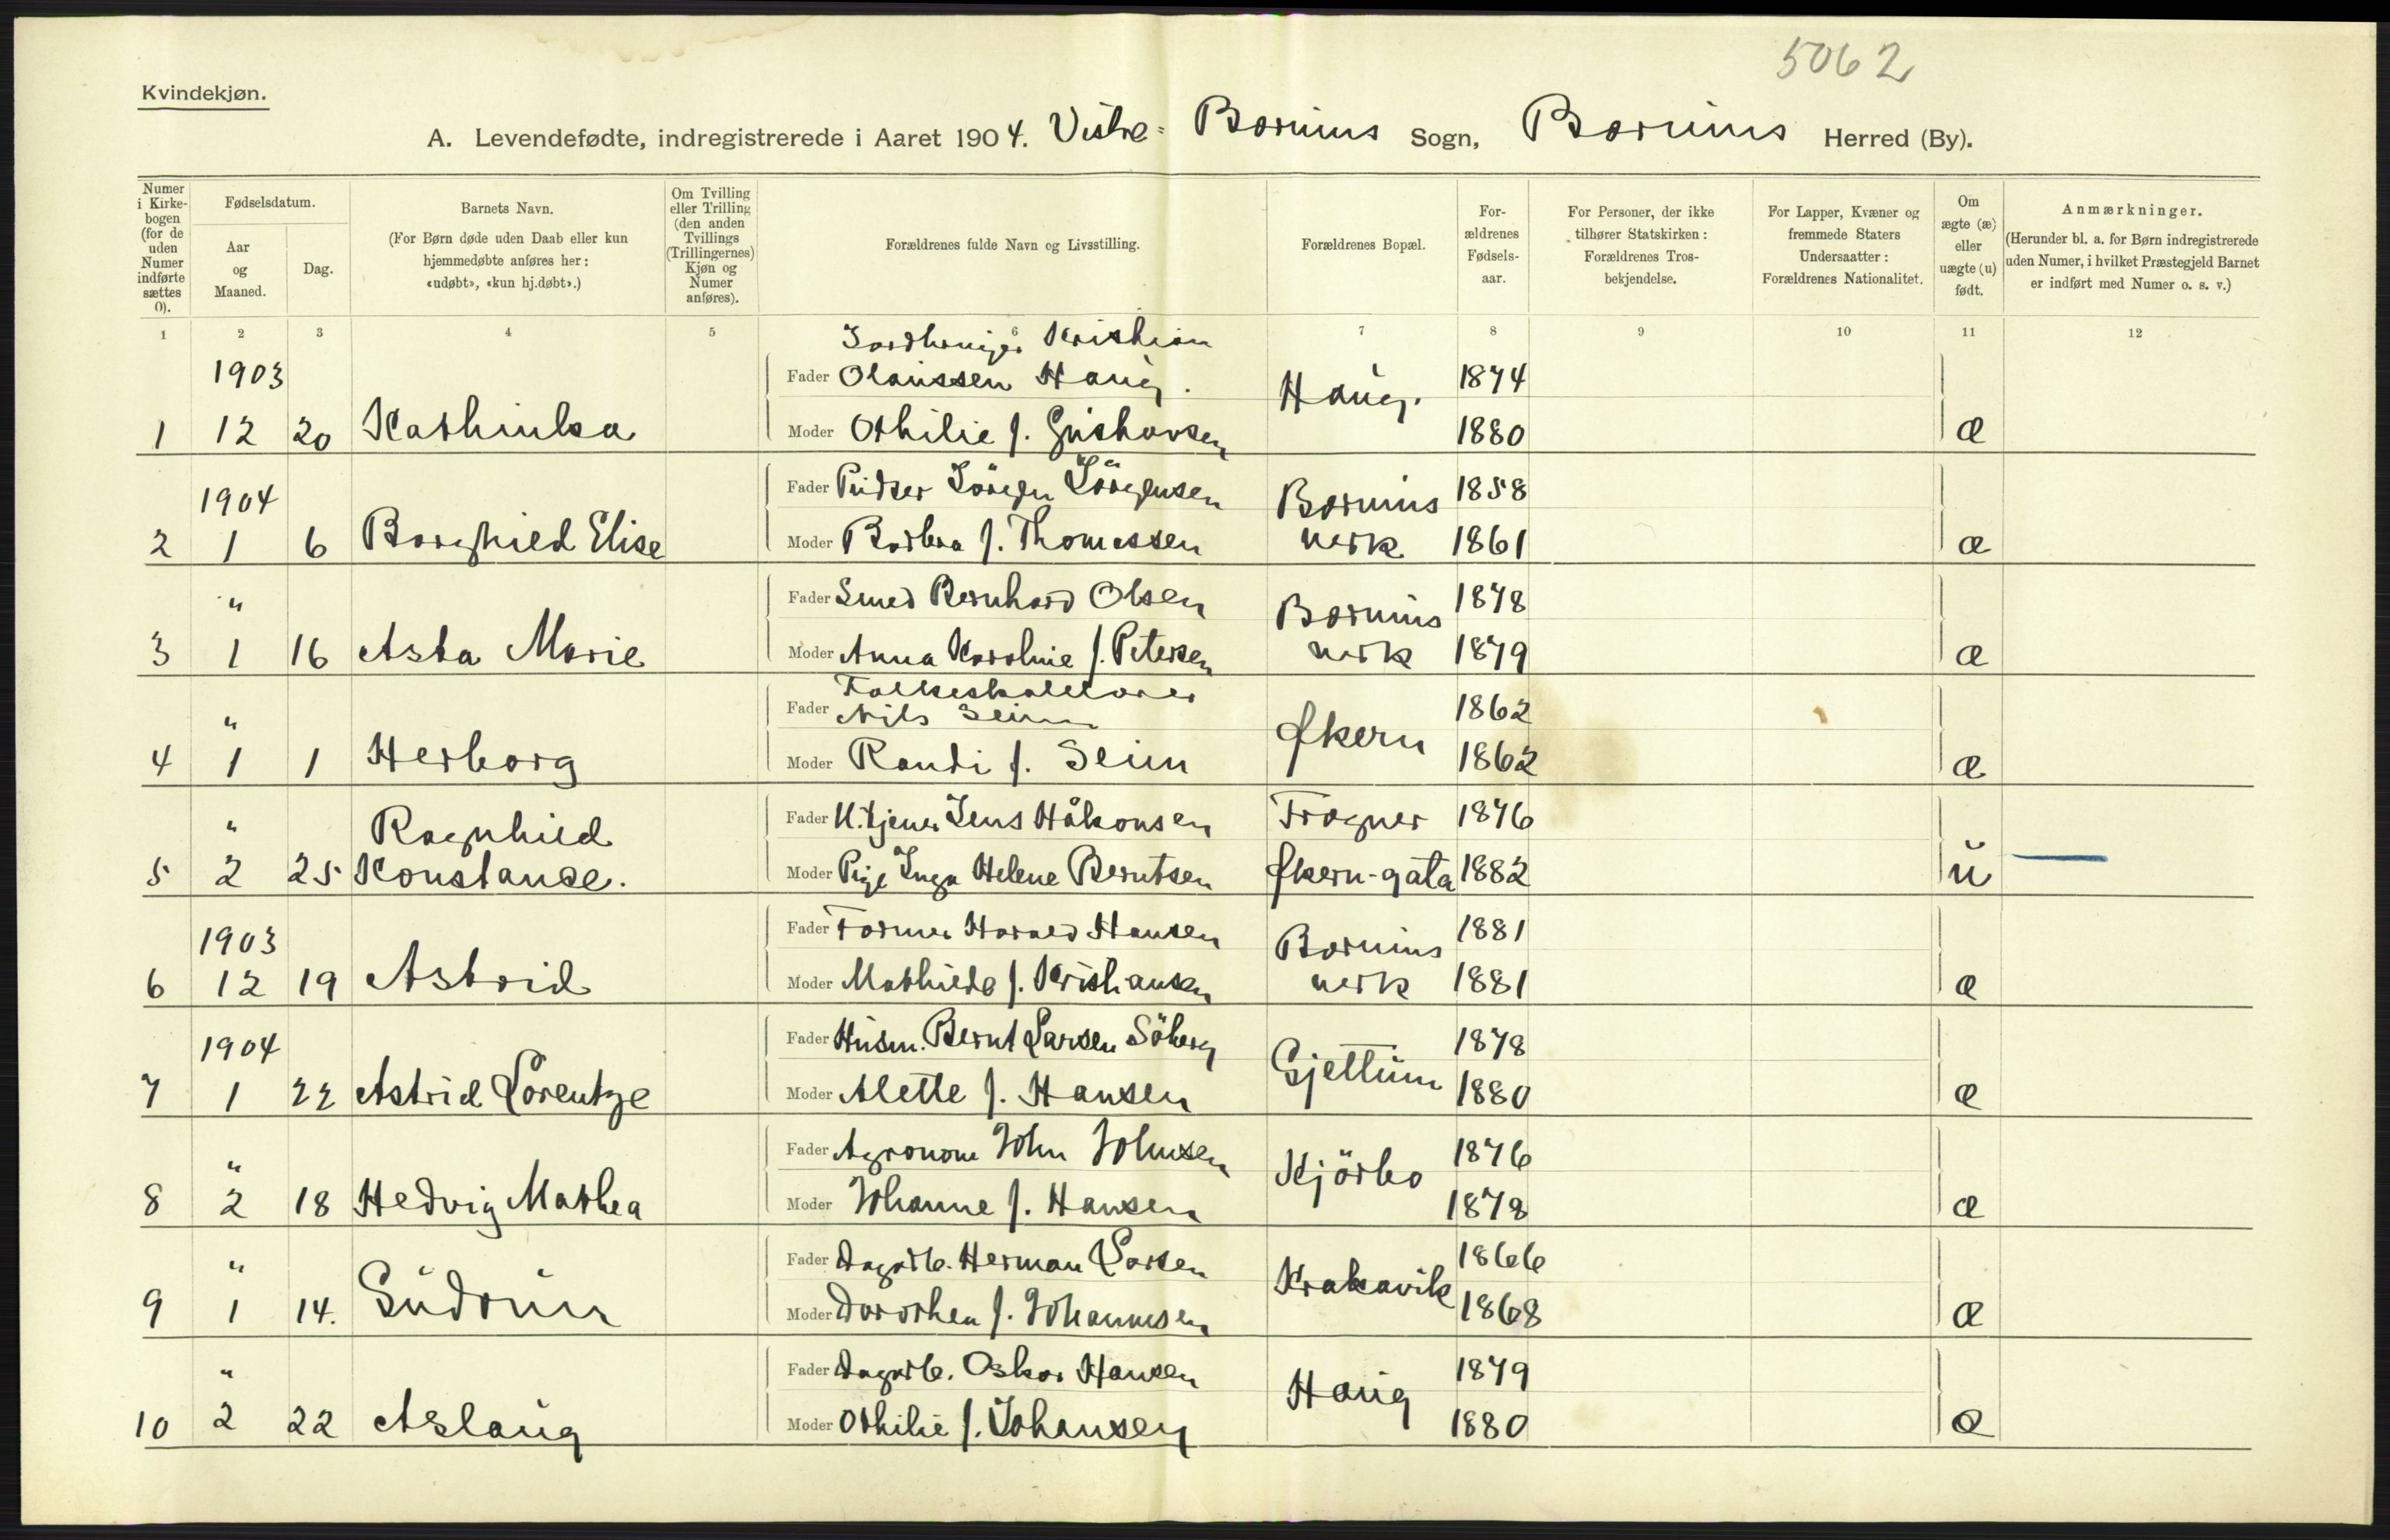 5062
Kvindekjøn.
A. Levendefødte, indregistrerede i Aaret 1904. Vestre Bærums Sogn, Bærums Herred (By).
Numer i Kirkebogen (for de uden Numer indførte sættes 0).
Fødselsdatum.
Aar og Maaned.
Dag.
Barnets Navn.
(For Børn døde uden Daab eller kun hjemmedøbte anføres her: «udøbt», «kun hj.døbt».)
Om Tvilling eller Trilling (den anden Tvillings (Trillingernes) Kjøn og Numer anføres).
Forældrenes fulde Navn og Livsstilling.
Forældrenes Bopæl.
Forældrenes Fødselsaar.
For Personer, der ikke tilhører Statskirken: Forældrenes Trosbekjendelse.
For Lapper, Kvæner og fremmede Staters Undersaatter: Forældrenes Nationalitet.
Om ægte (æ) eller uægte (u) født.
Anmærkninger.
(Herunder bl. a. for Børn indregistrerede uden Numer, i hvilket Præstegjeld Barnet er indført med Numer o. s. v.)
1 2 3 4 5 6 7 8 9 10 11 12
1903
1 12 20 Kathinka
Jordbruger Kristian
Fader Olaussen Haug. Haug. 1874
Moder Othilie f. Gustavsen 1880 æ
1904
2 1 6 Borghild Elise
Fader Pudser Jörgen Jörgensen Bærums 1858
Moder Barbra f. Thomassen verk 1861 æ
"
3 1 16 Asta Marie
Fader Smed Bernhard Olsen Bærums 1878
Moder Anna Karoline f. Petersen verk 1879 æ
"
4 1 1 Herborg
Folkeskolelærer
Fader Nils Seim Økern 1862
Moder Randi f. Seim 1862 æ
"
5 2 25 Ragnhild Konstanse.
Fader U.tjener Jens Håkonsen Frogner 1876
Moder Pige Inga Helene Berntsen Økern-gata 1882 ŭ
1903
6 12 19 Astrid
Fader Former Harald Hansen Bærums 1881
Moder Mathilde f. Kristiansen verk 1881 æ
1904
7 1 22 Astrid Lorentze
Fader Husm. Bernt Larsen Söberg Gjettum 1878
Moder Alette f. Hansen 1880 æ
"
8 2 18 Hedvig Mathea
Fader Agronom John Johnsen Kjörbo 1876
Moder Johanne f. Hansen 1878 æ
"
9 1 14. Gudrun
Fader Dagarb. Herman Larsen Krakavik 1866
Moder Dorothea f. Johannesen 1868 æ
"
10 2 22 Aslaug
Fader Dagarb. Oskar Hansen Haug 1879
Moder Othilie f. Johansen 1880 æ